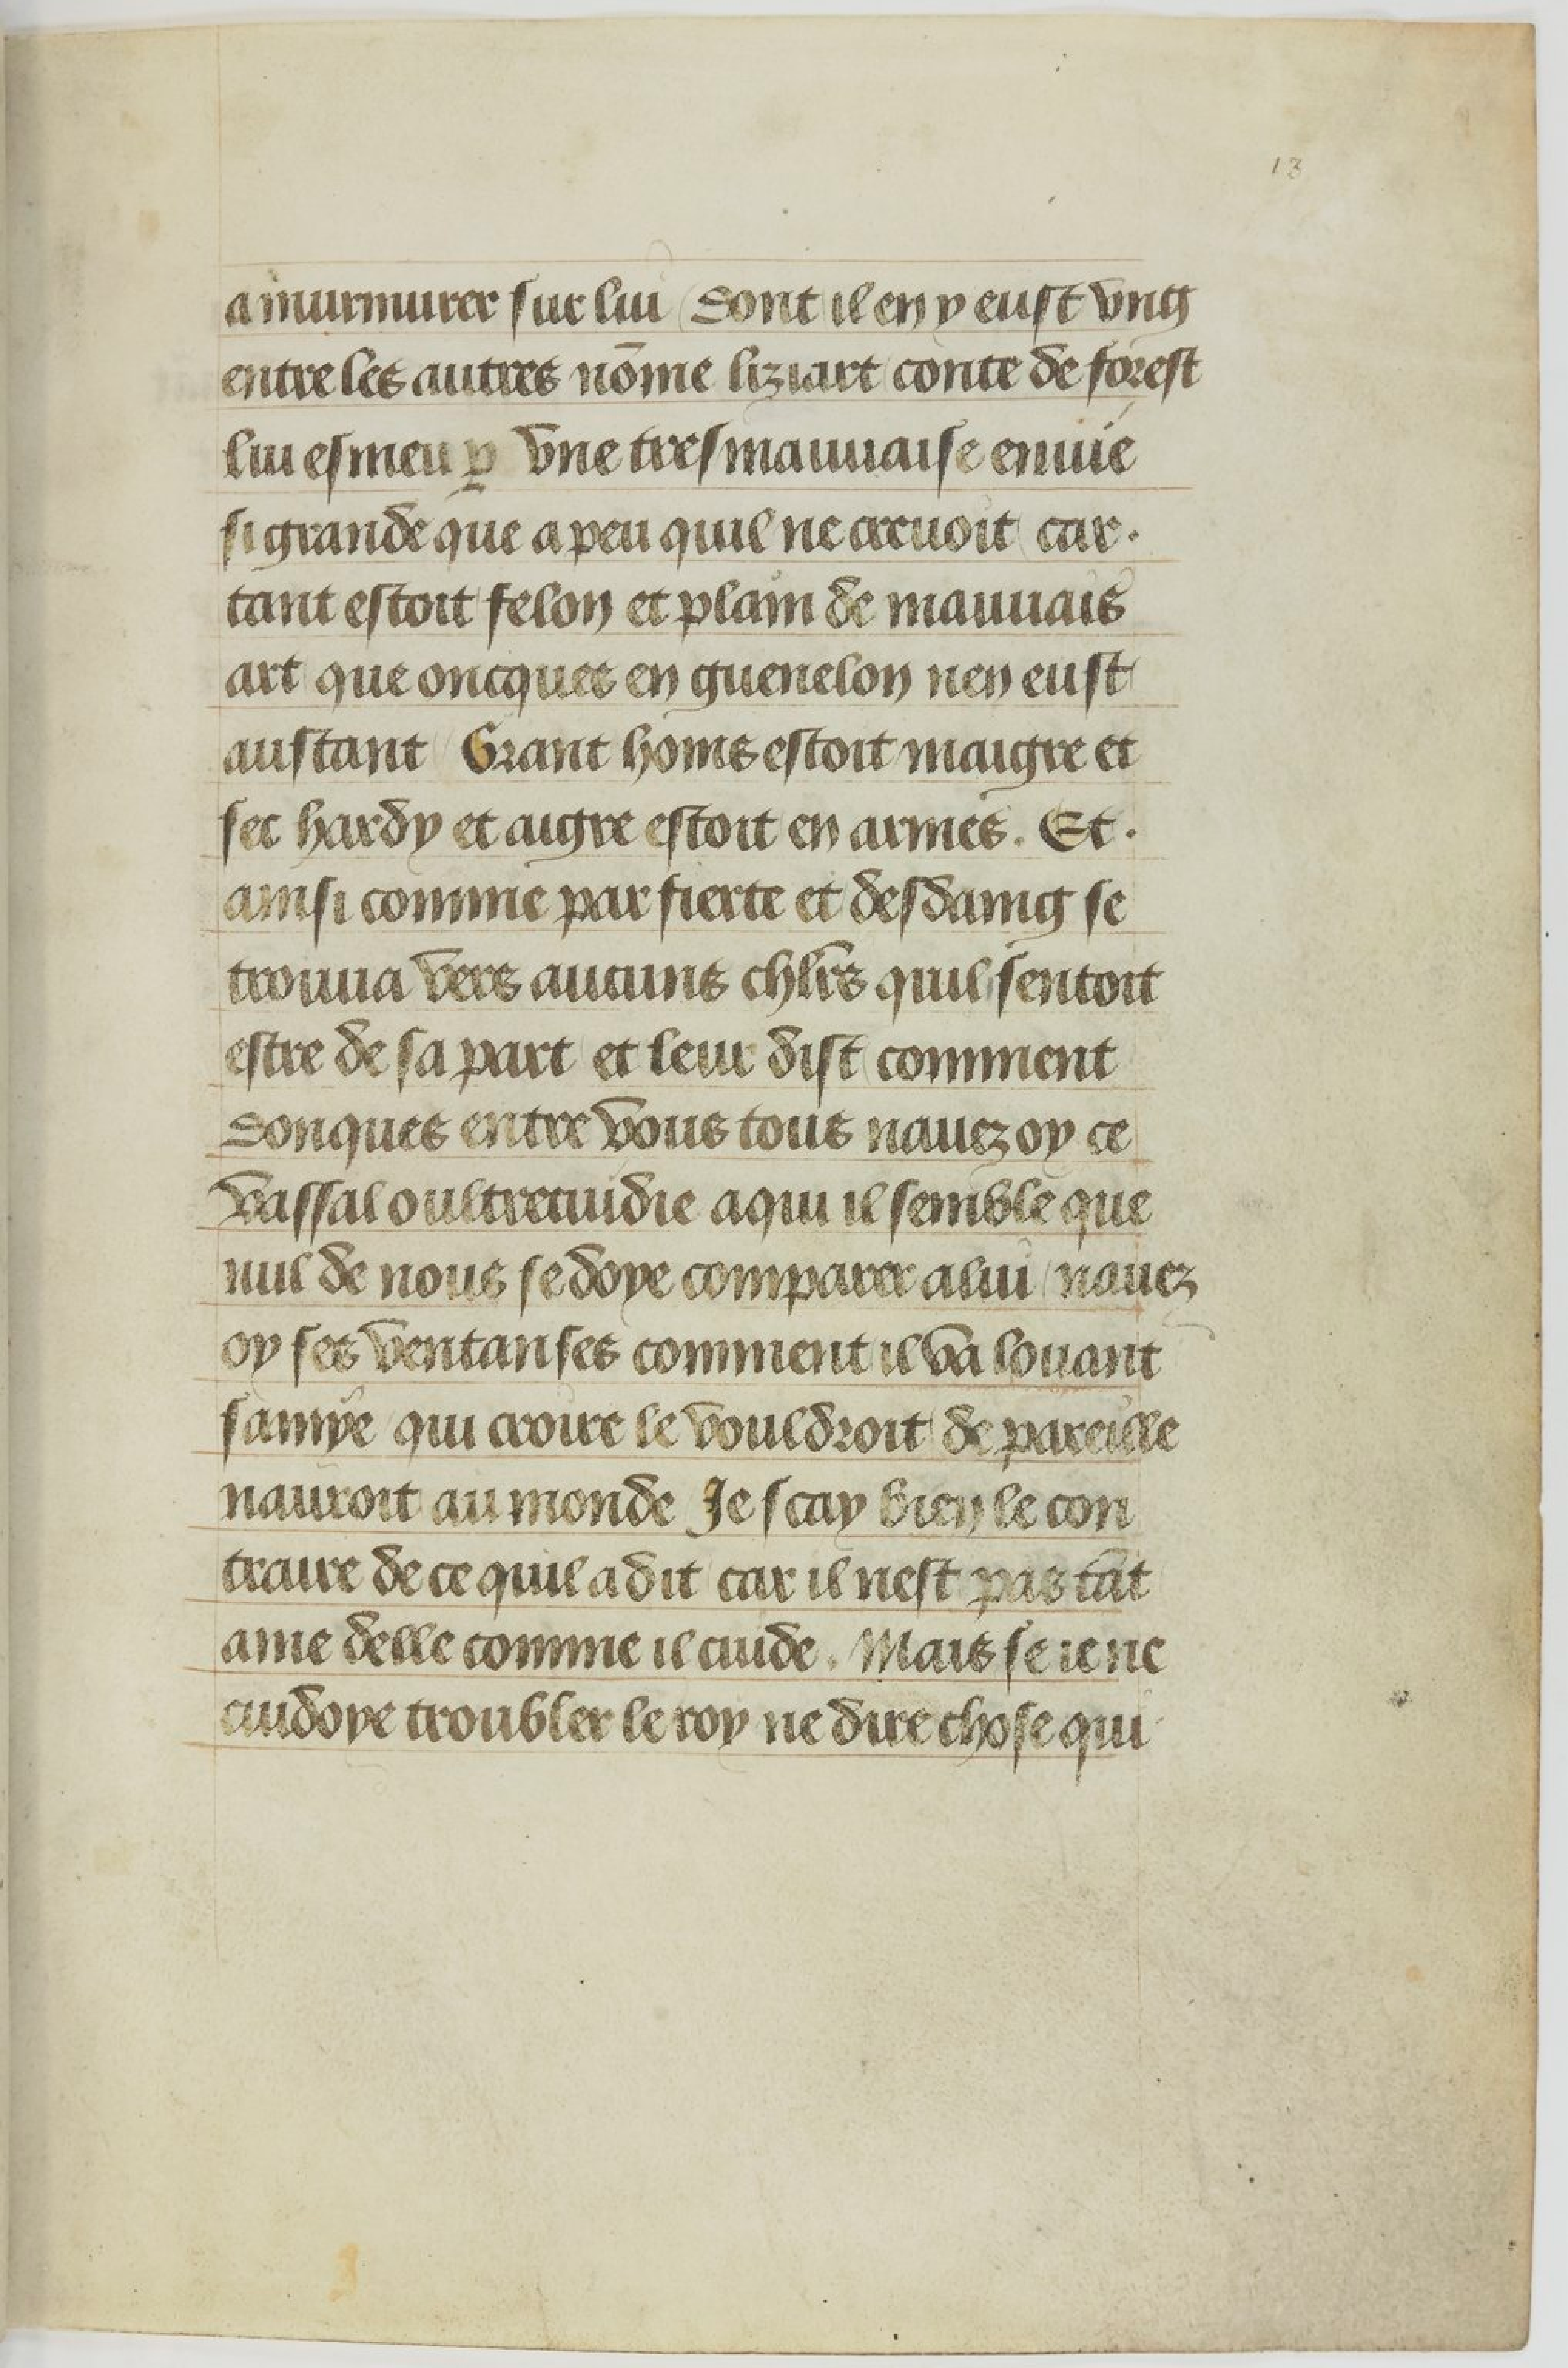 13
a murmurer sur lui dont il en y eust vng
entre les autres nōme liziart conte de forest
lui esmeu ꝑ vne tresmauuaise enuie
si grande que a peu quil ne creuoit car.
tant estoit felon et plain de mauuais
art que oncques en guenelon nen eust
austant Grant homs estoit maigre et
sec hardy et aigre estoit en armes. Et.
ainsi comme par fierte et desdaing se
trouua vers aucuns chl̄rs quil sentoit
estre de sa part et leur dist comment
donques entre vous tous nauez oy ce
vassal oultrecuidie a qui il semble que
nul de nous se doye comparer a lui nauez
oy ses ventanses comment il va louant
samye qui croire le vouldroit de pareille
nauroit au monde Je scay bien le con
traire de ce quil a dit car il nest pas tāt
ame delle comme il cuide. Mais se ie ne
cuidoye troubler le roy ne dire chose qui